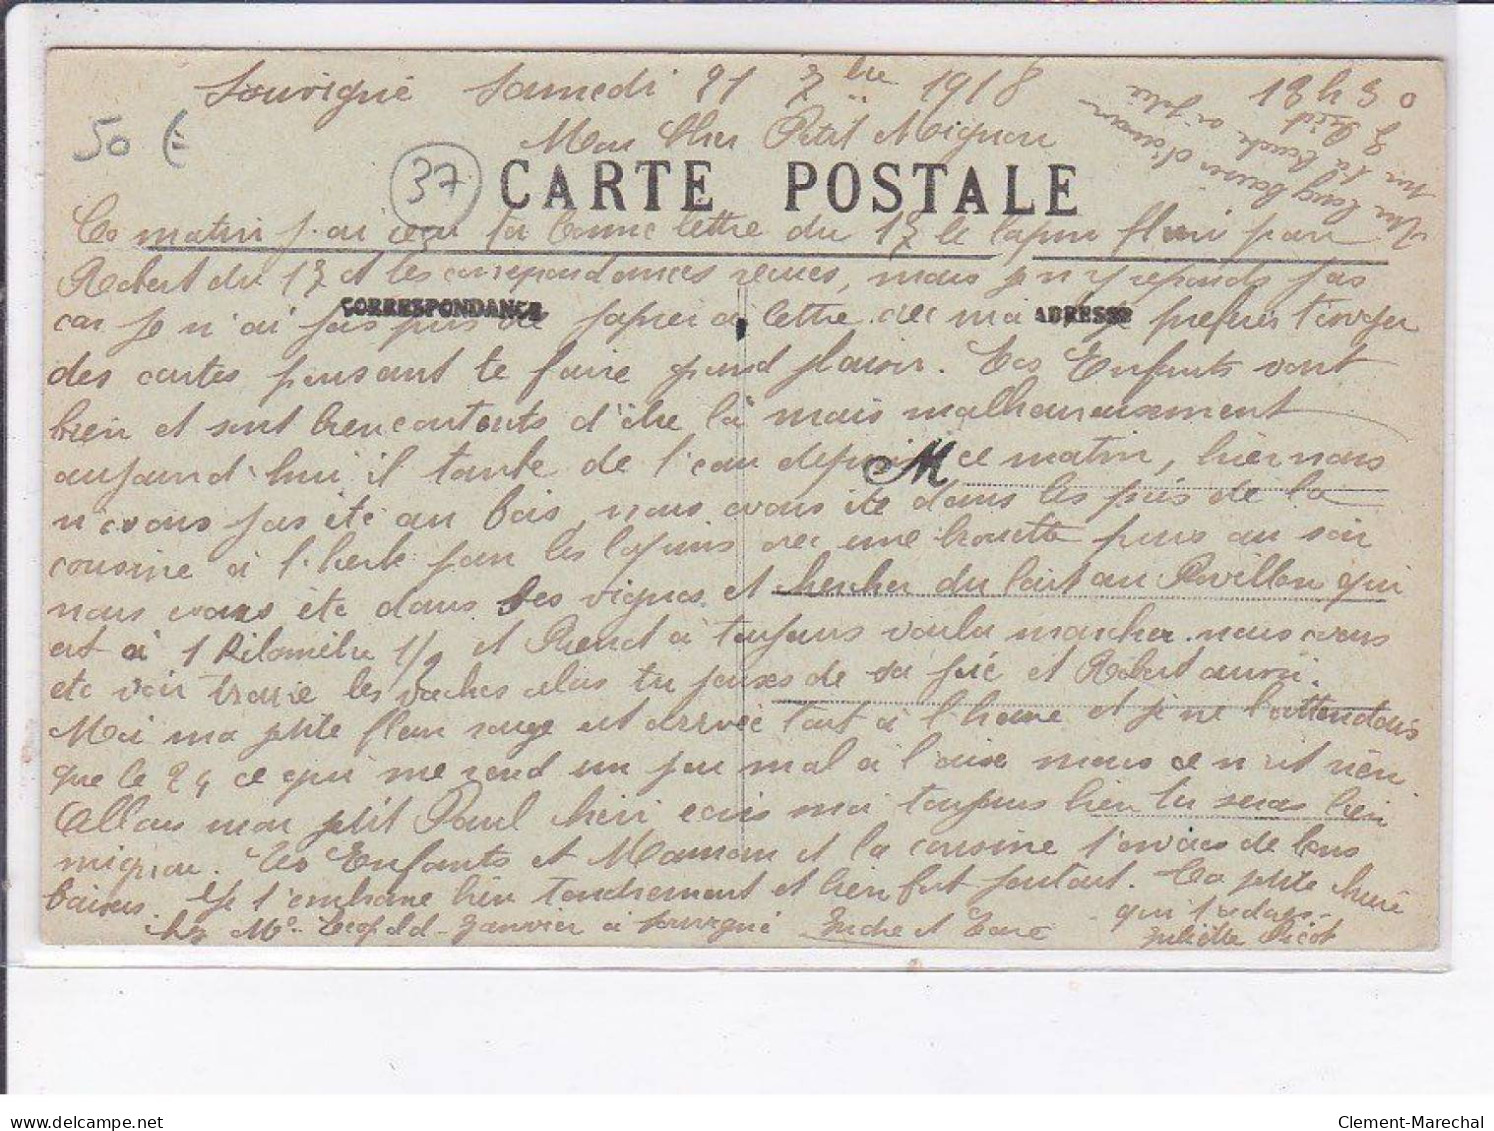 Souvigné Samedi 21 7bre 1918
13h31
Mon Cher Petit Mignon
Un long baiser d'amour
sur ta bouche si jolie
50 €
37
CARTE POSTALE
Ce matin j'ai reçu ta bonne lettre du 17 le lapin fleuri pour
Robert du 17 et les correspondances reçues, mais je n'y reponds pas
CORRESPONDANCE
ADRESSE
car je n'ai pas pris de papier a lettre avec moi et prefere t'envoyer
des cartes pensant te faire grand plaisir. Tes Enfants vont
bien et sont bien contents d'être là mais malheureusement
aujourd'hui il tombe de l'eau depuis ce matin, hier nous
M
n'avons pas été au bois, nous avons été dans les prés de la
cousine à l'herbe pour les lapins avec une brouette puis au soir
nous avons été dans les vignes et chercher du lait au Pavillon qui
est à 1 Kilomètre 1/2 et René à toujours voulu marcher. nous avons
ete voir traire les vaches alors tu penses de sa joie et Robert aussi.
Moi ma ptite fleur rouge est arrivée tout à l'heure et je ne l'attendais
que le 24 ce qui me rend un peu mal à l'aise mais ce n'est rien
Allons mon ptit Paul cheri ecris moi toujours bien tu seras bien
mignon. Tes Enfants et Maman et la cousine t'envoies de bons
baisers. Je t'embrasse bien tendrement et bien fort partout. Ta ptite cherie
qui t'adore
chez Mr Leopold Janvier à Souvigné Indre et Loire
Juliette Picot
Clement-Marechal
delcampe.net